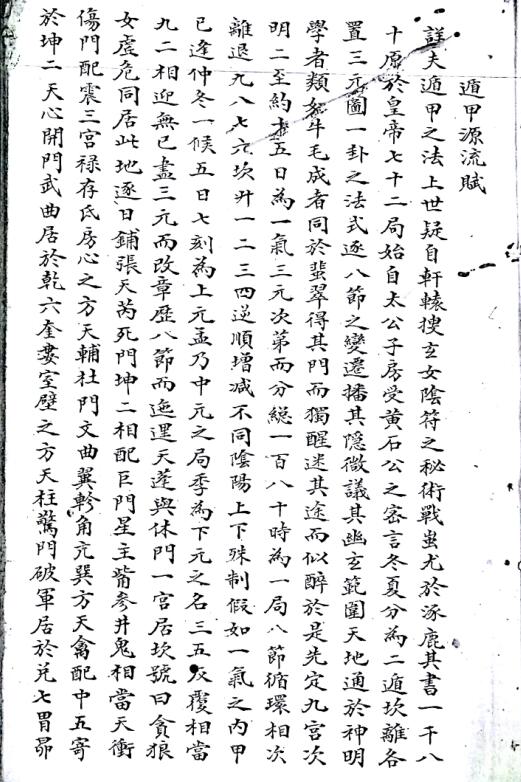 遁甲源流賦
詳夫遁甲之法上世疑自軒轅搜玄女陰符之秘術戰蚩尤於涿鹿其書一千八
十原於皇帝七十二局始自太公子房受黃石公之密言冬夏分為二遁坎離各
置三元圖一卦之法式逐八節之變遷播其隱微議其幽玄範圍天地通於神明
學者類如牛毛成者同於蜚翠得其門而獨醒迷其途而似醉於是先定九宮次
明二至約十五日為一氣三元次第而分總一百八十時為一局八節循環相次
離退九八七六坎升一二三四逆順增減不同陰陽上下殊制假如一氣之內甲
已逢仲冬一候五日七刻為上元孟乃中元之局季為下元之名三五反覆相當
九二相迎無已盡三元而改章歷八節而迤邐天蓬與休門一宮居坎號曰貪狼
女虛危同居此地逐日鋪張天芮死門坤二相配巨門星主觜參井鬼相當天衝
傷門配震三宮祿存氐房心之方天輔杜門文曲翼軫角亢巽方天禽配中五寄
於坤二天心開門武曲居於乾六奎婁室壁之方天柱驚門破軍居於兌七胃昴